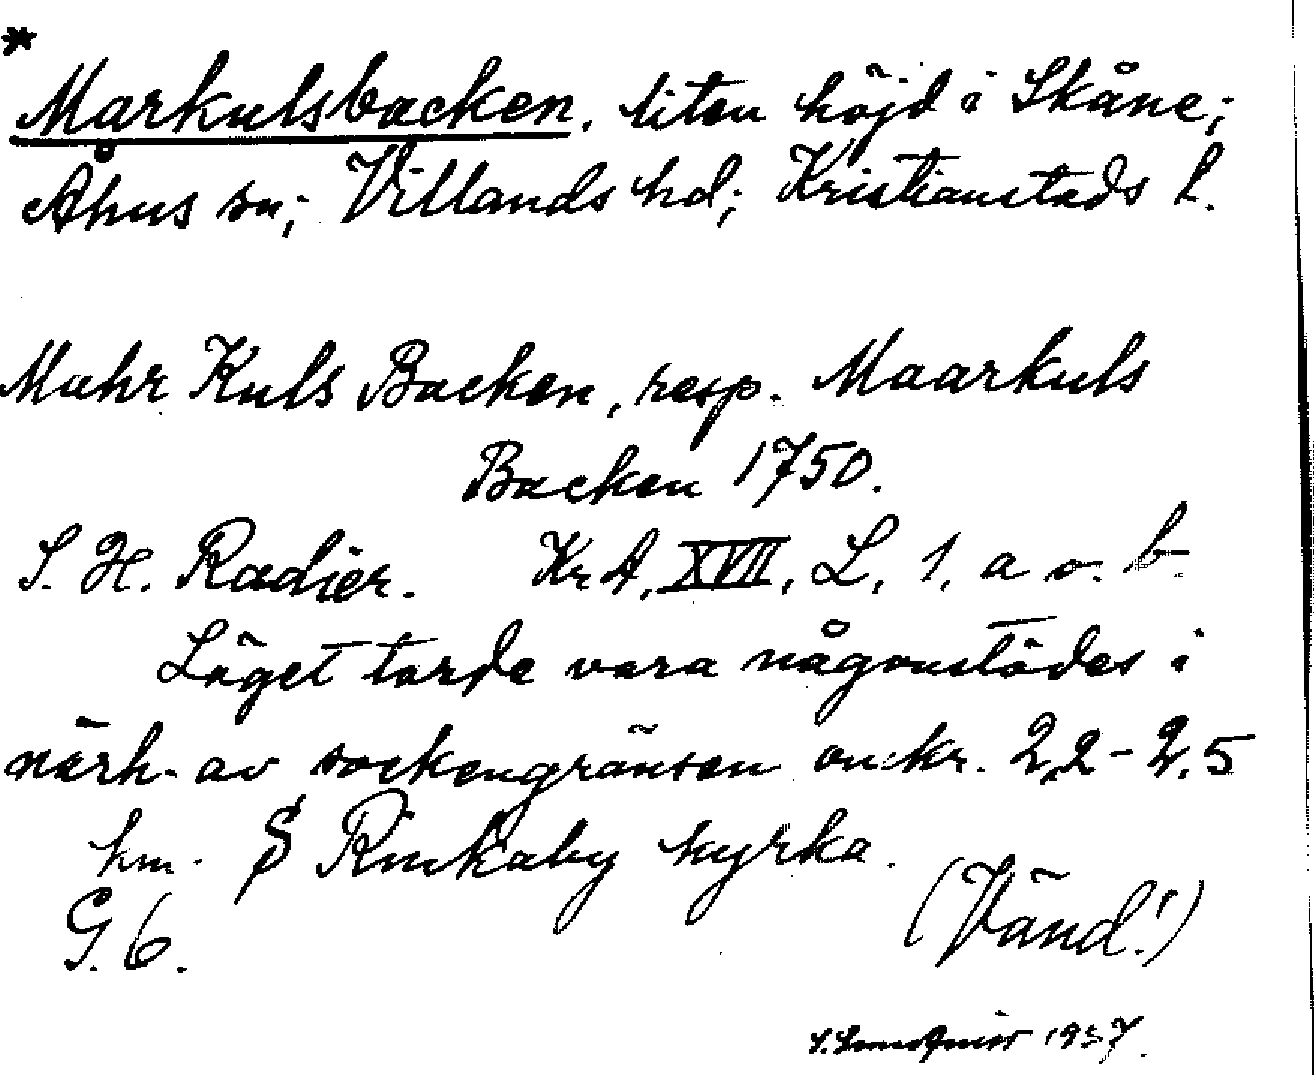 *
Markulsbacken. liten höjd i Skåne;
Åhus sn; Villands hd; Kristianstads l.
Mahr Kuls Backen, resp. Maarkuls
Backen 1750.
S. H. Radier. Kr A, XVII, L, 1, a o. b.
Läget torde vara någonstädes i
närh. av sockengränsen omkr. 2,2-2,5
km. S Rinkaby kyrka.
G. 6. (Vänd!)
1937.